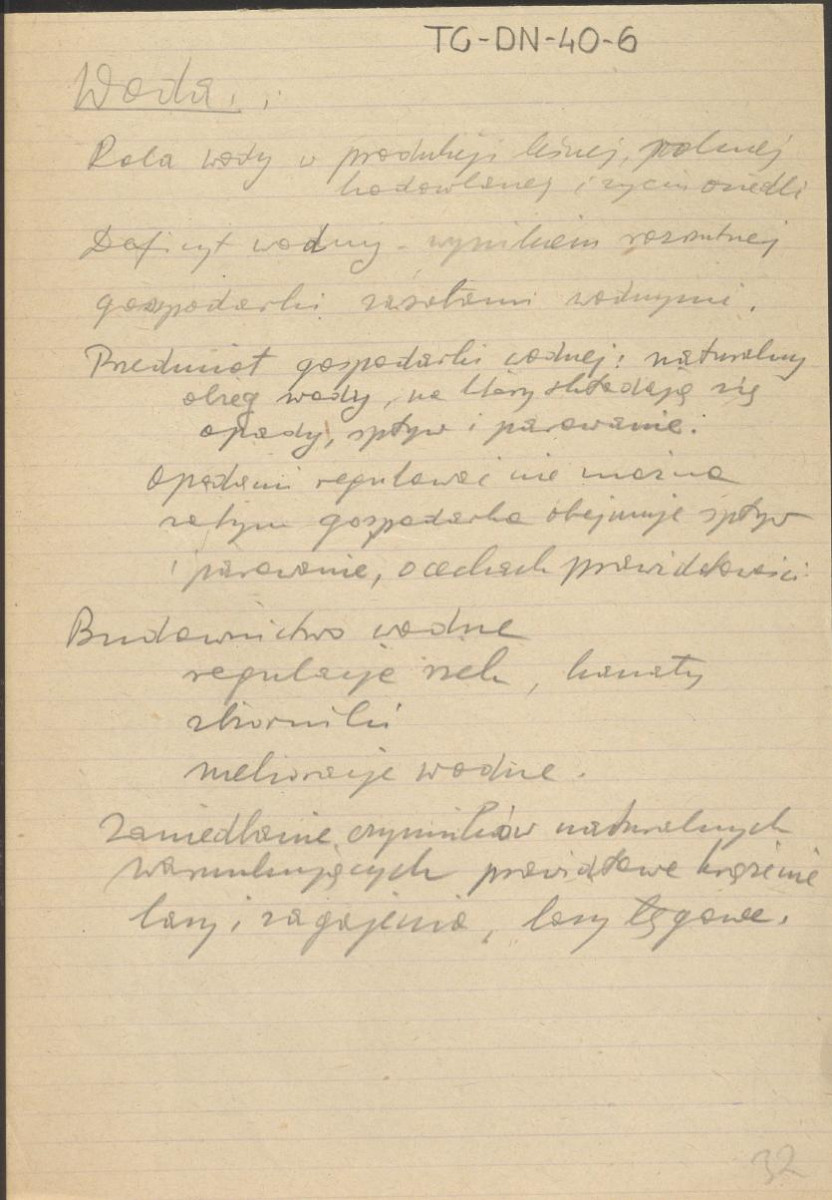 TG-DN-40-6
Woda.
Rola wody w produkcji leśnej, polnej
hodowlanej i życiu osiedli
Deficyt wodny - wynikiem rozrzutnej
gospodarki zasobami wodnymi.
Przedmiot gospodarki wodnej: naturalny
obieg wody, na który składają się
opady, spływ i parowanie.
Opadami regulować nie można
zatym gospodarka obejmuje spływ
i parowanie, o cechach prawidłowości
Budownictwo wodne
regulacje rzek, kanały
zbiorniki
melioracje wodne.
Zaniedbanie czynników naturalnych
warunkujących prawidłowe krążenie
lasy i zagajenia, lasy łęgowe.
32